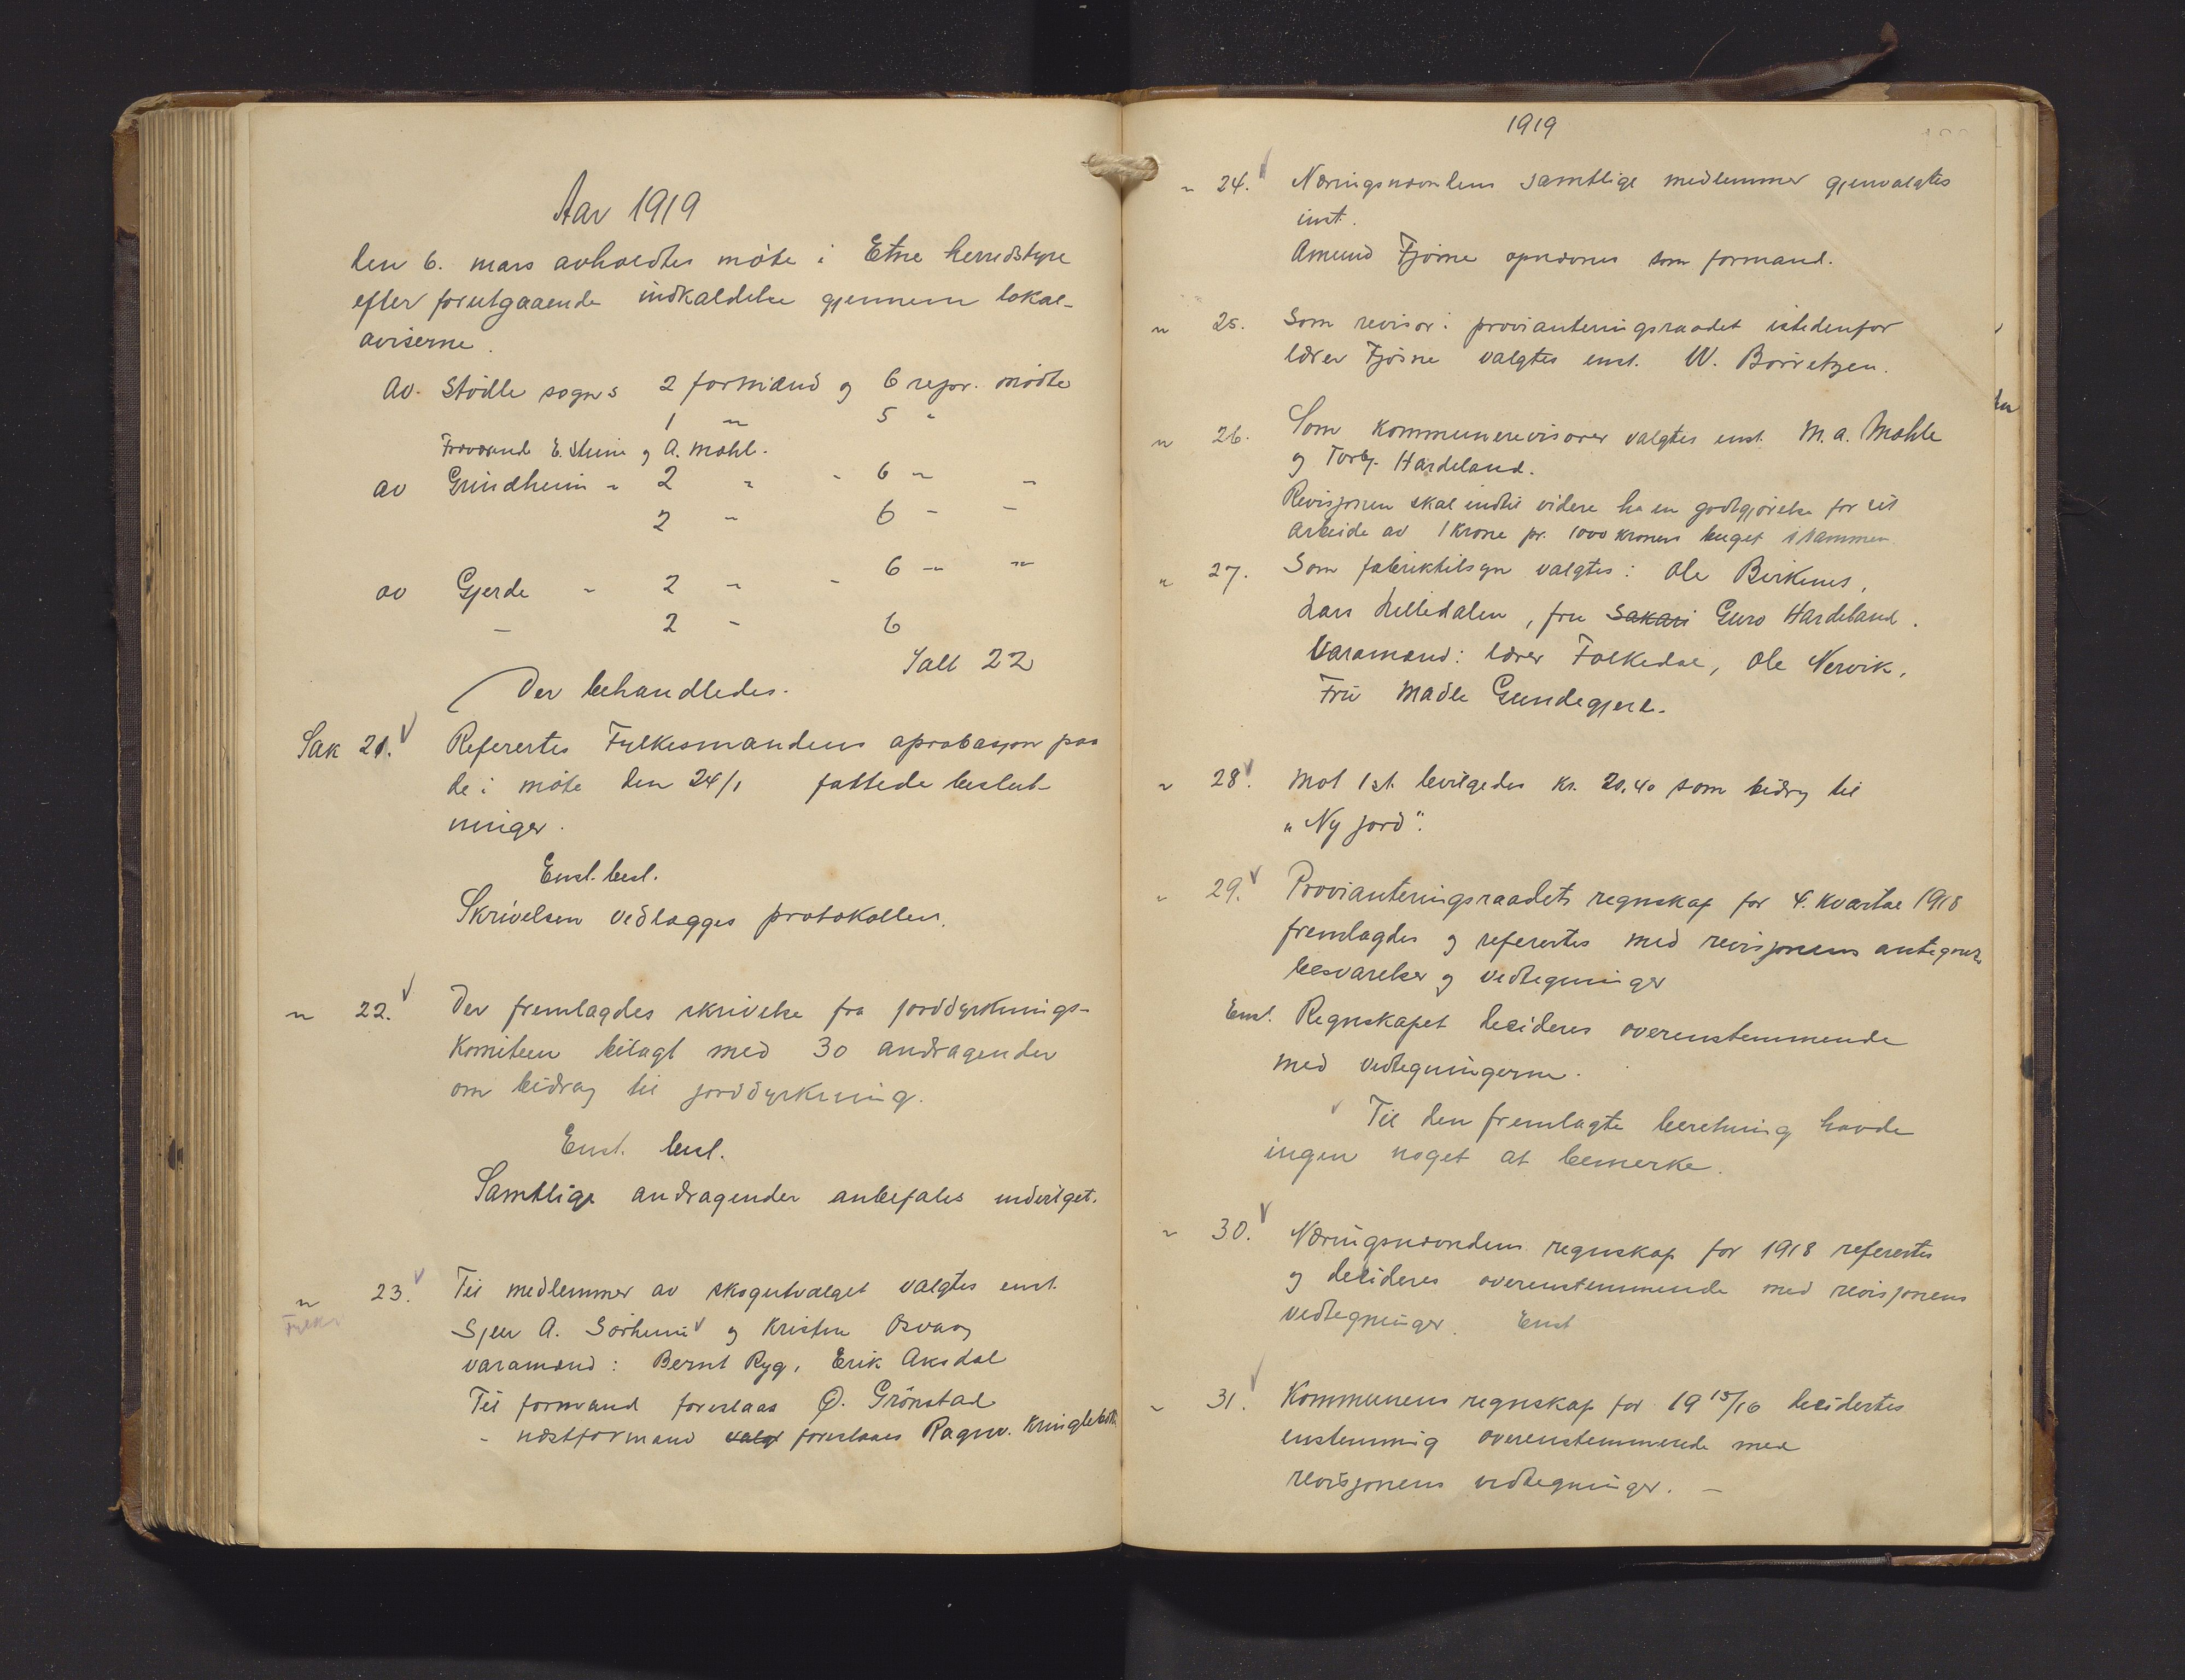 Aar 1919
den 6. mars avholdtes møte i Etne herredstyre
efter forutgaaende indkaldelse gjennem lokal-
aviserne.
Av Stødle sogns 2 formænd og 6 repr. mødte
1 " 5 "
Fraværende E. Steine og A. Mæhl.
av Grindheim " 2 " - 6 " "
2 " 6 - -
av Gjerde - 2 " - 6 " "
- 2 - 6
Ialt 22
Der behandledes.
Sak 21. Refertes Fylkesmandens aprobasjon paa
de i møte den 24/1 fattede beslut-
ninger.
Enst. besl.
Skrivelsen vedlægges protokollen.
" 22. Der fremlagdes skrivelse fra jorddyrknings-
komiteen bilagt med 30 andragender
om bidrag til jorddyrkning.
Enst. besl.
Samtlige andragender anbefales indvilget.
" 23. Til medlemmer av skogutvalget valgtes enst.
Sjur A. Sørheim og Kristen Osvaag
varamænd: Bernt Ryg, Erik Aksdal
Til formand foreslaas Ø. Grønstad
- næstformand valgt foreslaaes Ragnv. Kringlebotn
Fylke
1919
" 24. Næringsnævndens samtlige medlemmer gjenvalgtes
enst.
Amund Fjøsne opnævnes som formand.
" 25. Som revisor i provianteringsraadet istedenfor
lærer Fjøsne valgtes enst. W. Børretzen.
" 26. Som kommunerevisorer valgtes enst. M. A. Mæhle
og Torbj. Hardeland.
Revisjonen skal indtil videre ha en godtgjørelse for sit
arbeide av 1 krone pr. 1000 kroner lagt sammen.
" 27. Som fabriktilsyn valgtes: Ole Birkenes,
Lars Lilledalen, fru Sakari Guro Hardeland.
Varamænd: lærer Folkedal, Ole Nervik,
Fru Madle Gundegjerd.
" 28. Mot 1 st. bevilgedes kr. 20.40 som bidrag til
"Ny jord".
" 29. Provianteringsraadets regnskap for 4. kvartal 1918
fremlagdes og refertes med revisjonens antegnels.
besvarelser og vedtegninger
Enst. Regnskapet decideres overenstemmende
med vedtegningerne.
Til den fremlagte beretning havde
ingen noget at bemerke.
" 30. Næringsnævndens regnskap for 1918 refertes
og decideres overenstemmende med revisjonens
vedtegninger. Enst
" 31. Kommunens regnskap for 19 15/16 decidertes
enstemmig overenstemmende med
revisjonens vedtegninger. -